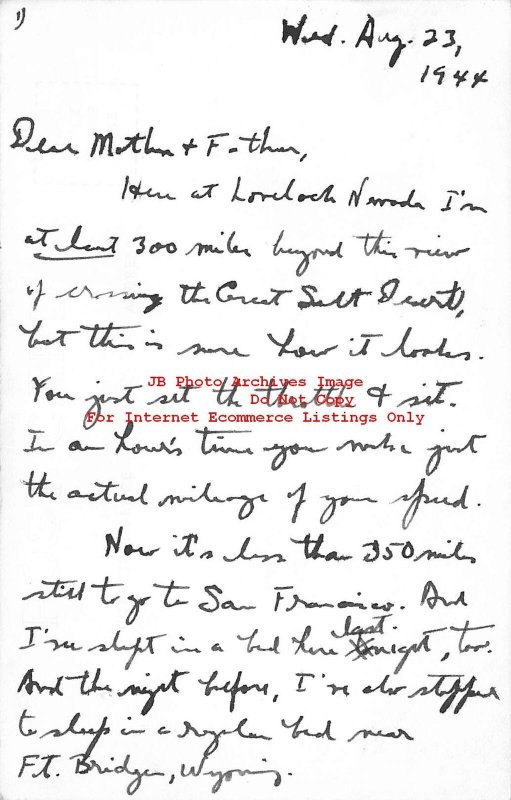 1)
Wed. Aug. 23,
1944
Dear Mother & Father,
Here at Lovelock Nevada I'm
at least 300 miles beyond this view
of crossing the Great Salt Desert,
but this is sure how it looks.
You just set the throttle & sit.
JB Photo Archives Image
Do Not Copy
For Internet Ecommerce Listings Only
In an hour's time you make just
the actual mileage of your speed.
Now it's less than 350 miles
still to go to San Francisco. And
I've slept in a bed here last night, too.
And the night before, I've also stopped
to sleep in a regular bed near
Ft. Bridger, Wyoming.